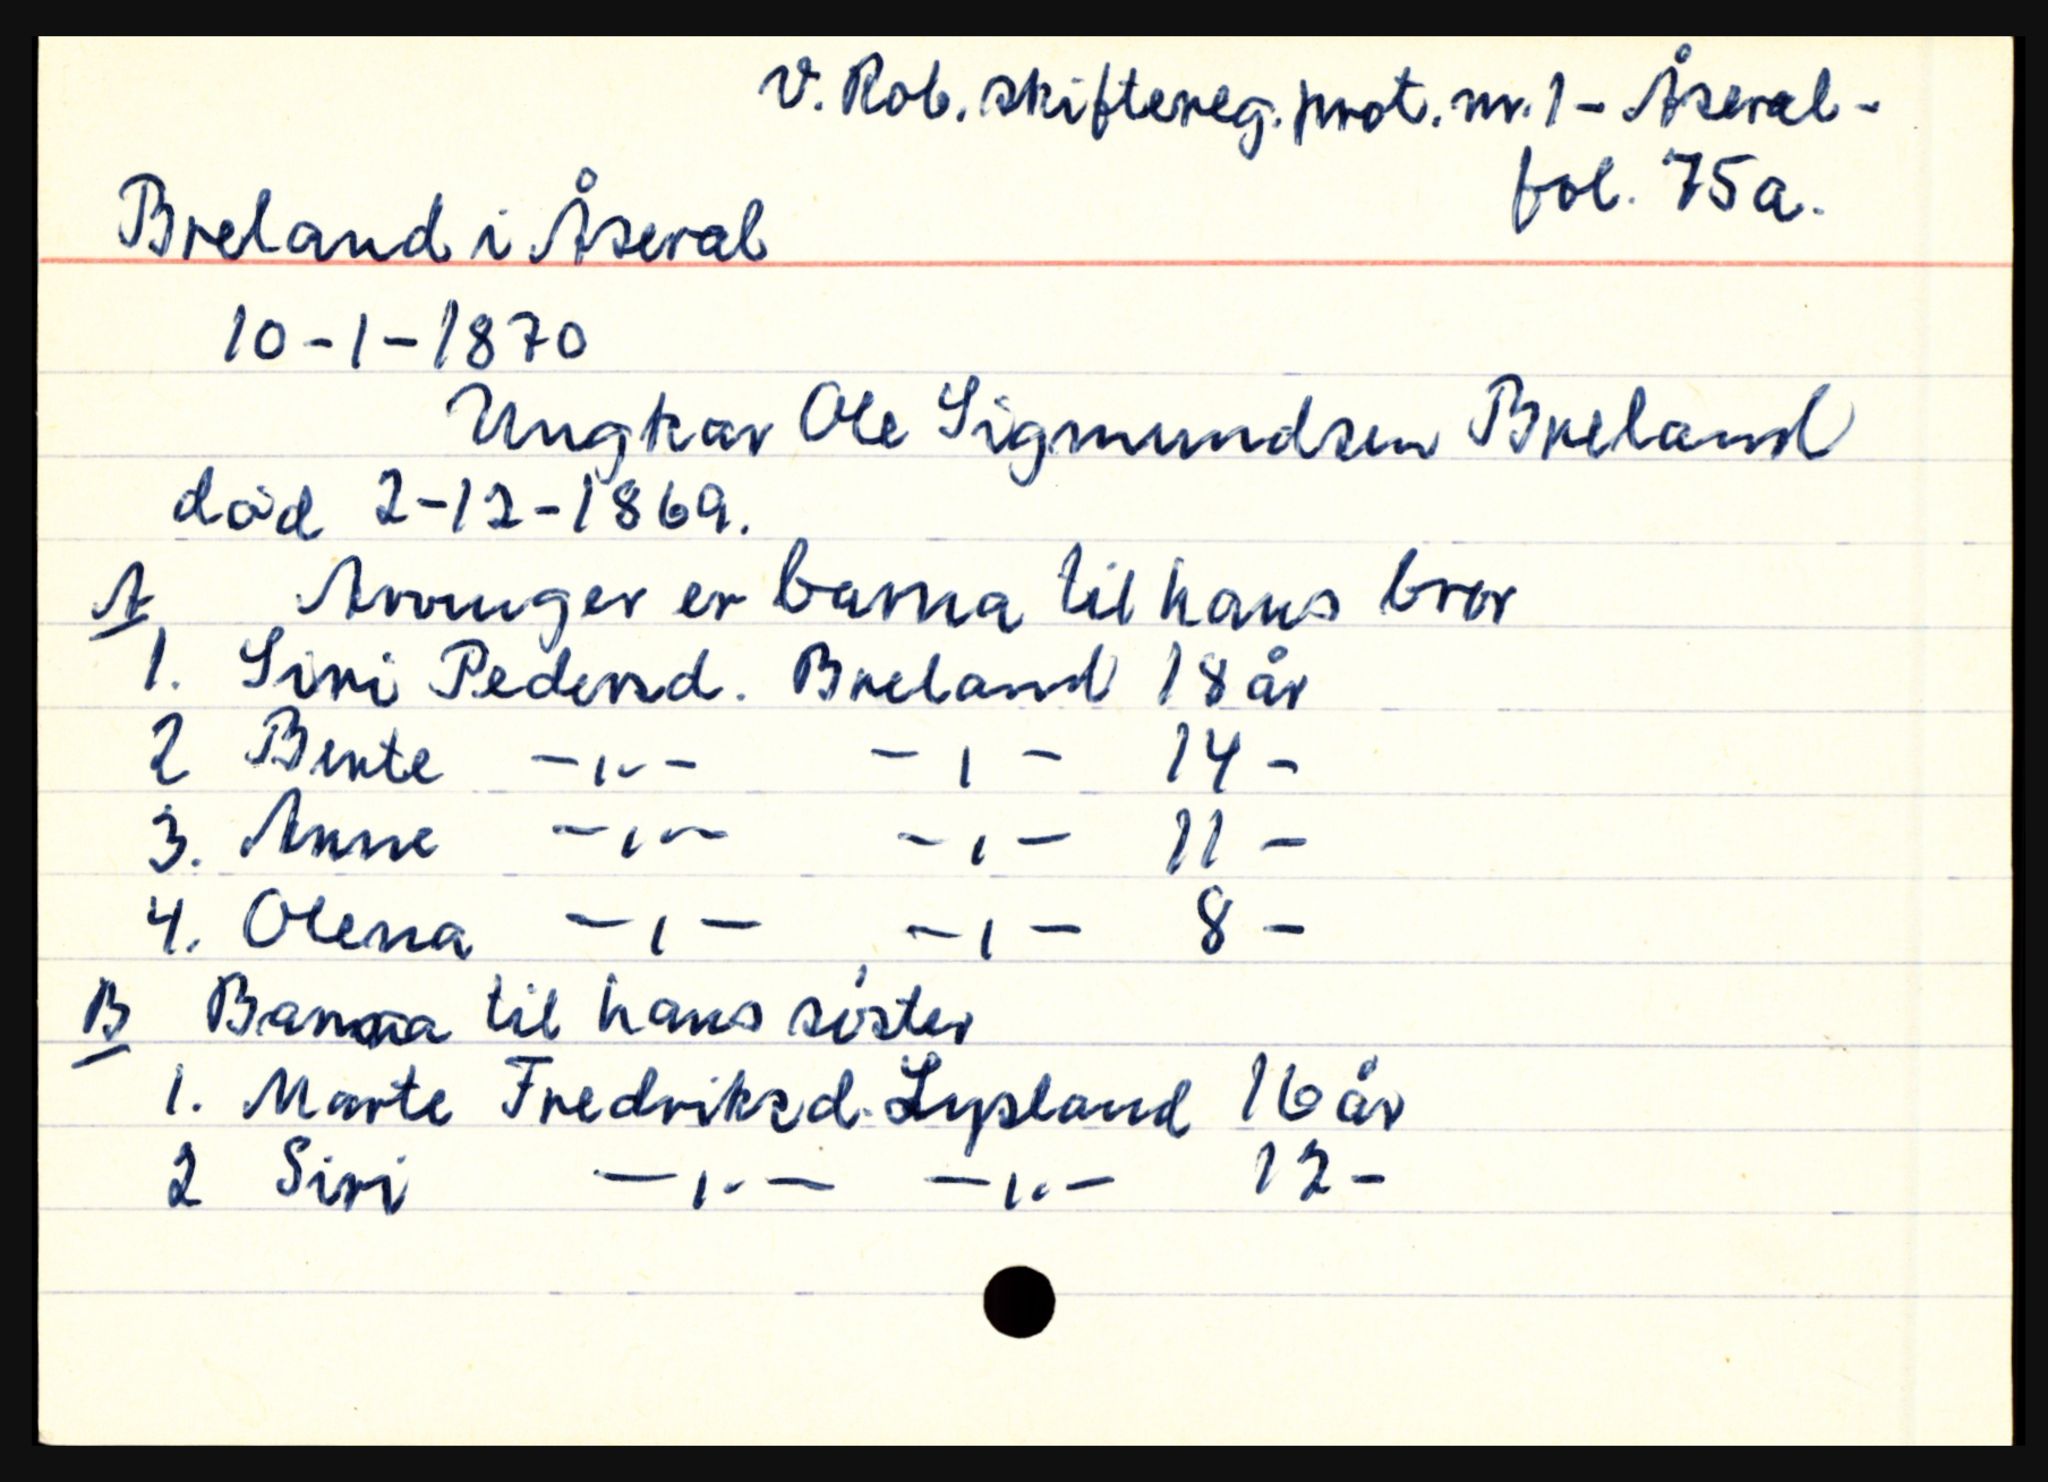 V. Rob. skiftereg. prot. nr. 1 - Åseral -
fol. 75a.
Breland i Åseral
10-1-1870
Ungkar Ole Sigmundsen Breland
död 2-12-1869.
A Arvinger er barna til hans bror
1. Siri Pedersd. Breland 18 år
2 Berte -"- -"- 14 -
3. Anne -"- -"- 11 -
4. Olena -"- -"- 8 -
B Barna til hans söster
1. Marte Fredriksd. Lysland 16 år
2 Siri -"- -"- 12 -